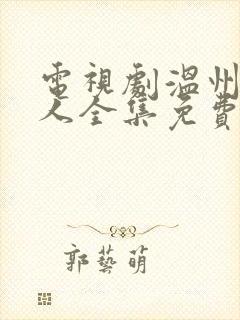 電視劇溫州
人全集免費
郭藝萌